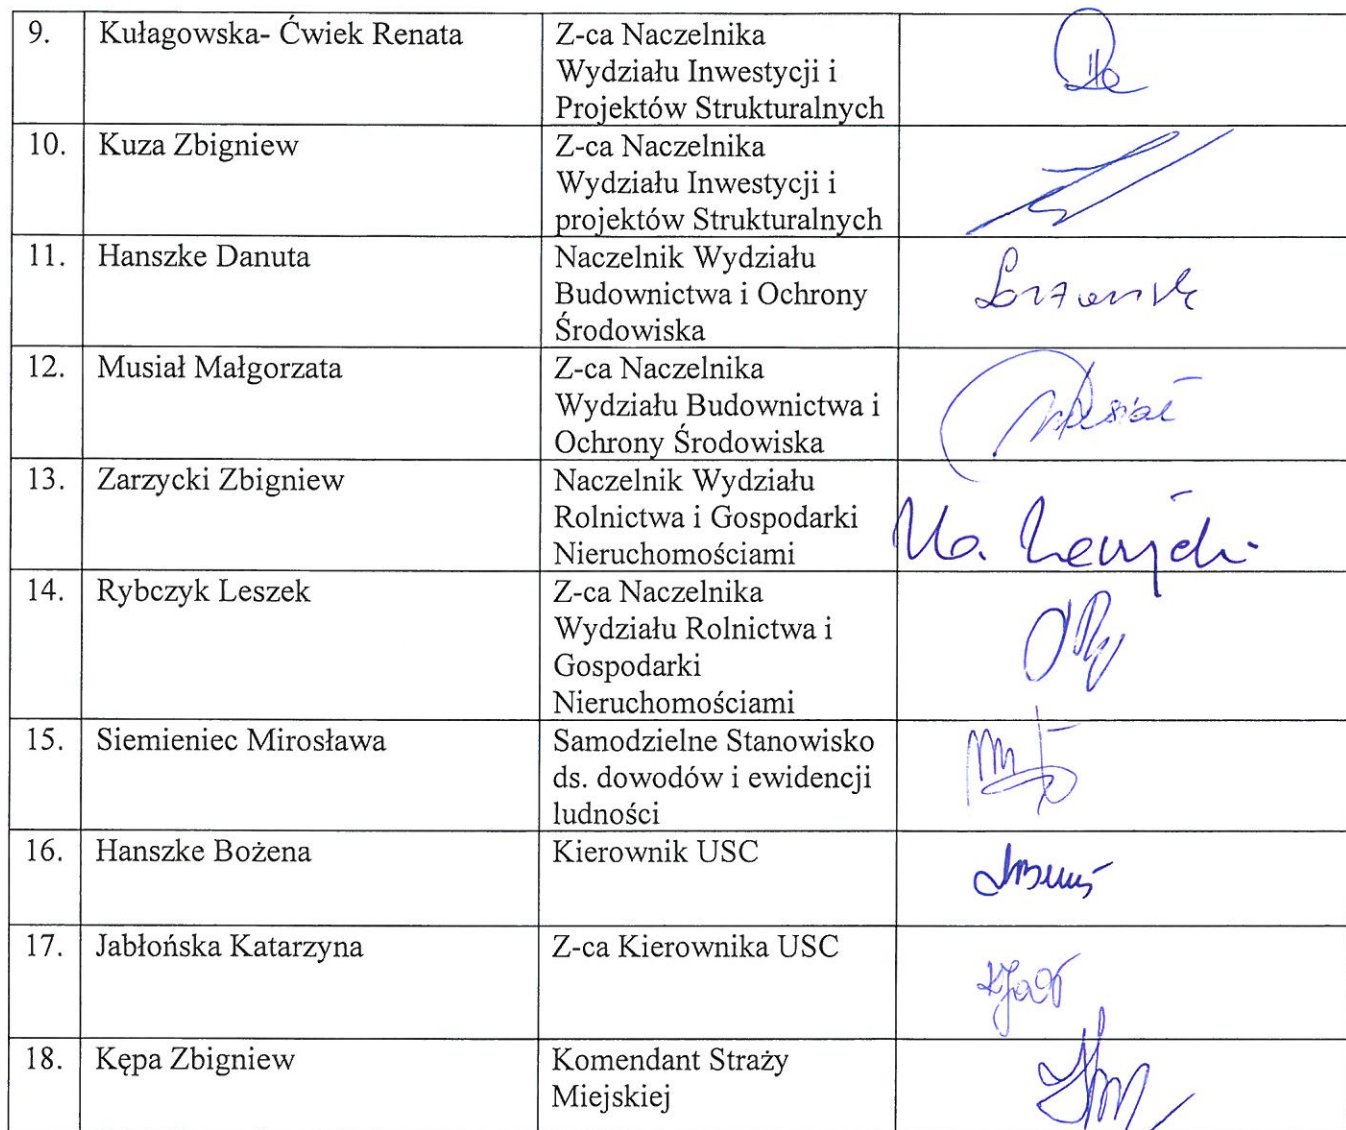 9. Kułagowska- Ćwiek Renata Z-ca Naczelnika
Wydziału Inwestycji i
Projektów Strukturalnych
10. Kuza Zbigniew Z-ca Naczelnika
Wydziału Inwestycji i
projektów Strukturalnych
11. Hanszke Danuta Naczelnik Wydziału
Budownictwa i Ochrony
Środowiska
12. Musiał Małgorzata Z-ca Naczelnika
Wydziału Budownictwa i
Ochrony Środowiska
Musiał
13. Zarzycki Zbigniew Naczelnik Wydziału
Rolnictwa i Gospodarki
Nieruchomościami
14. Rybczyk Leszek Z-ca Naczelnika
Wydziału Rolnictwa i
Gospodarki
Nieruchomościami
15. Siemieniec Mirosława Samodzielne Stanowisko
ds. dowodów i ewidencji
ludności
16. Hanszke Bożena Kierownik USC
17. Jabłońska Katarzyna Z-ca Kierownika USC
18. Kępa Zbigniew Komendant Straży
Miejskiej